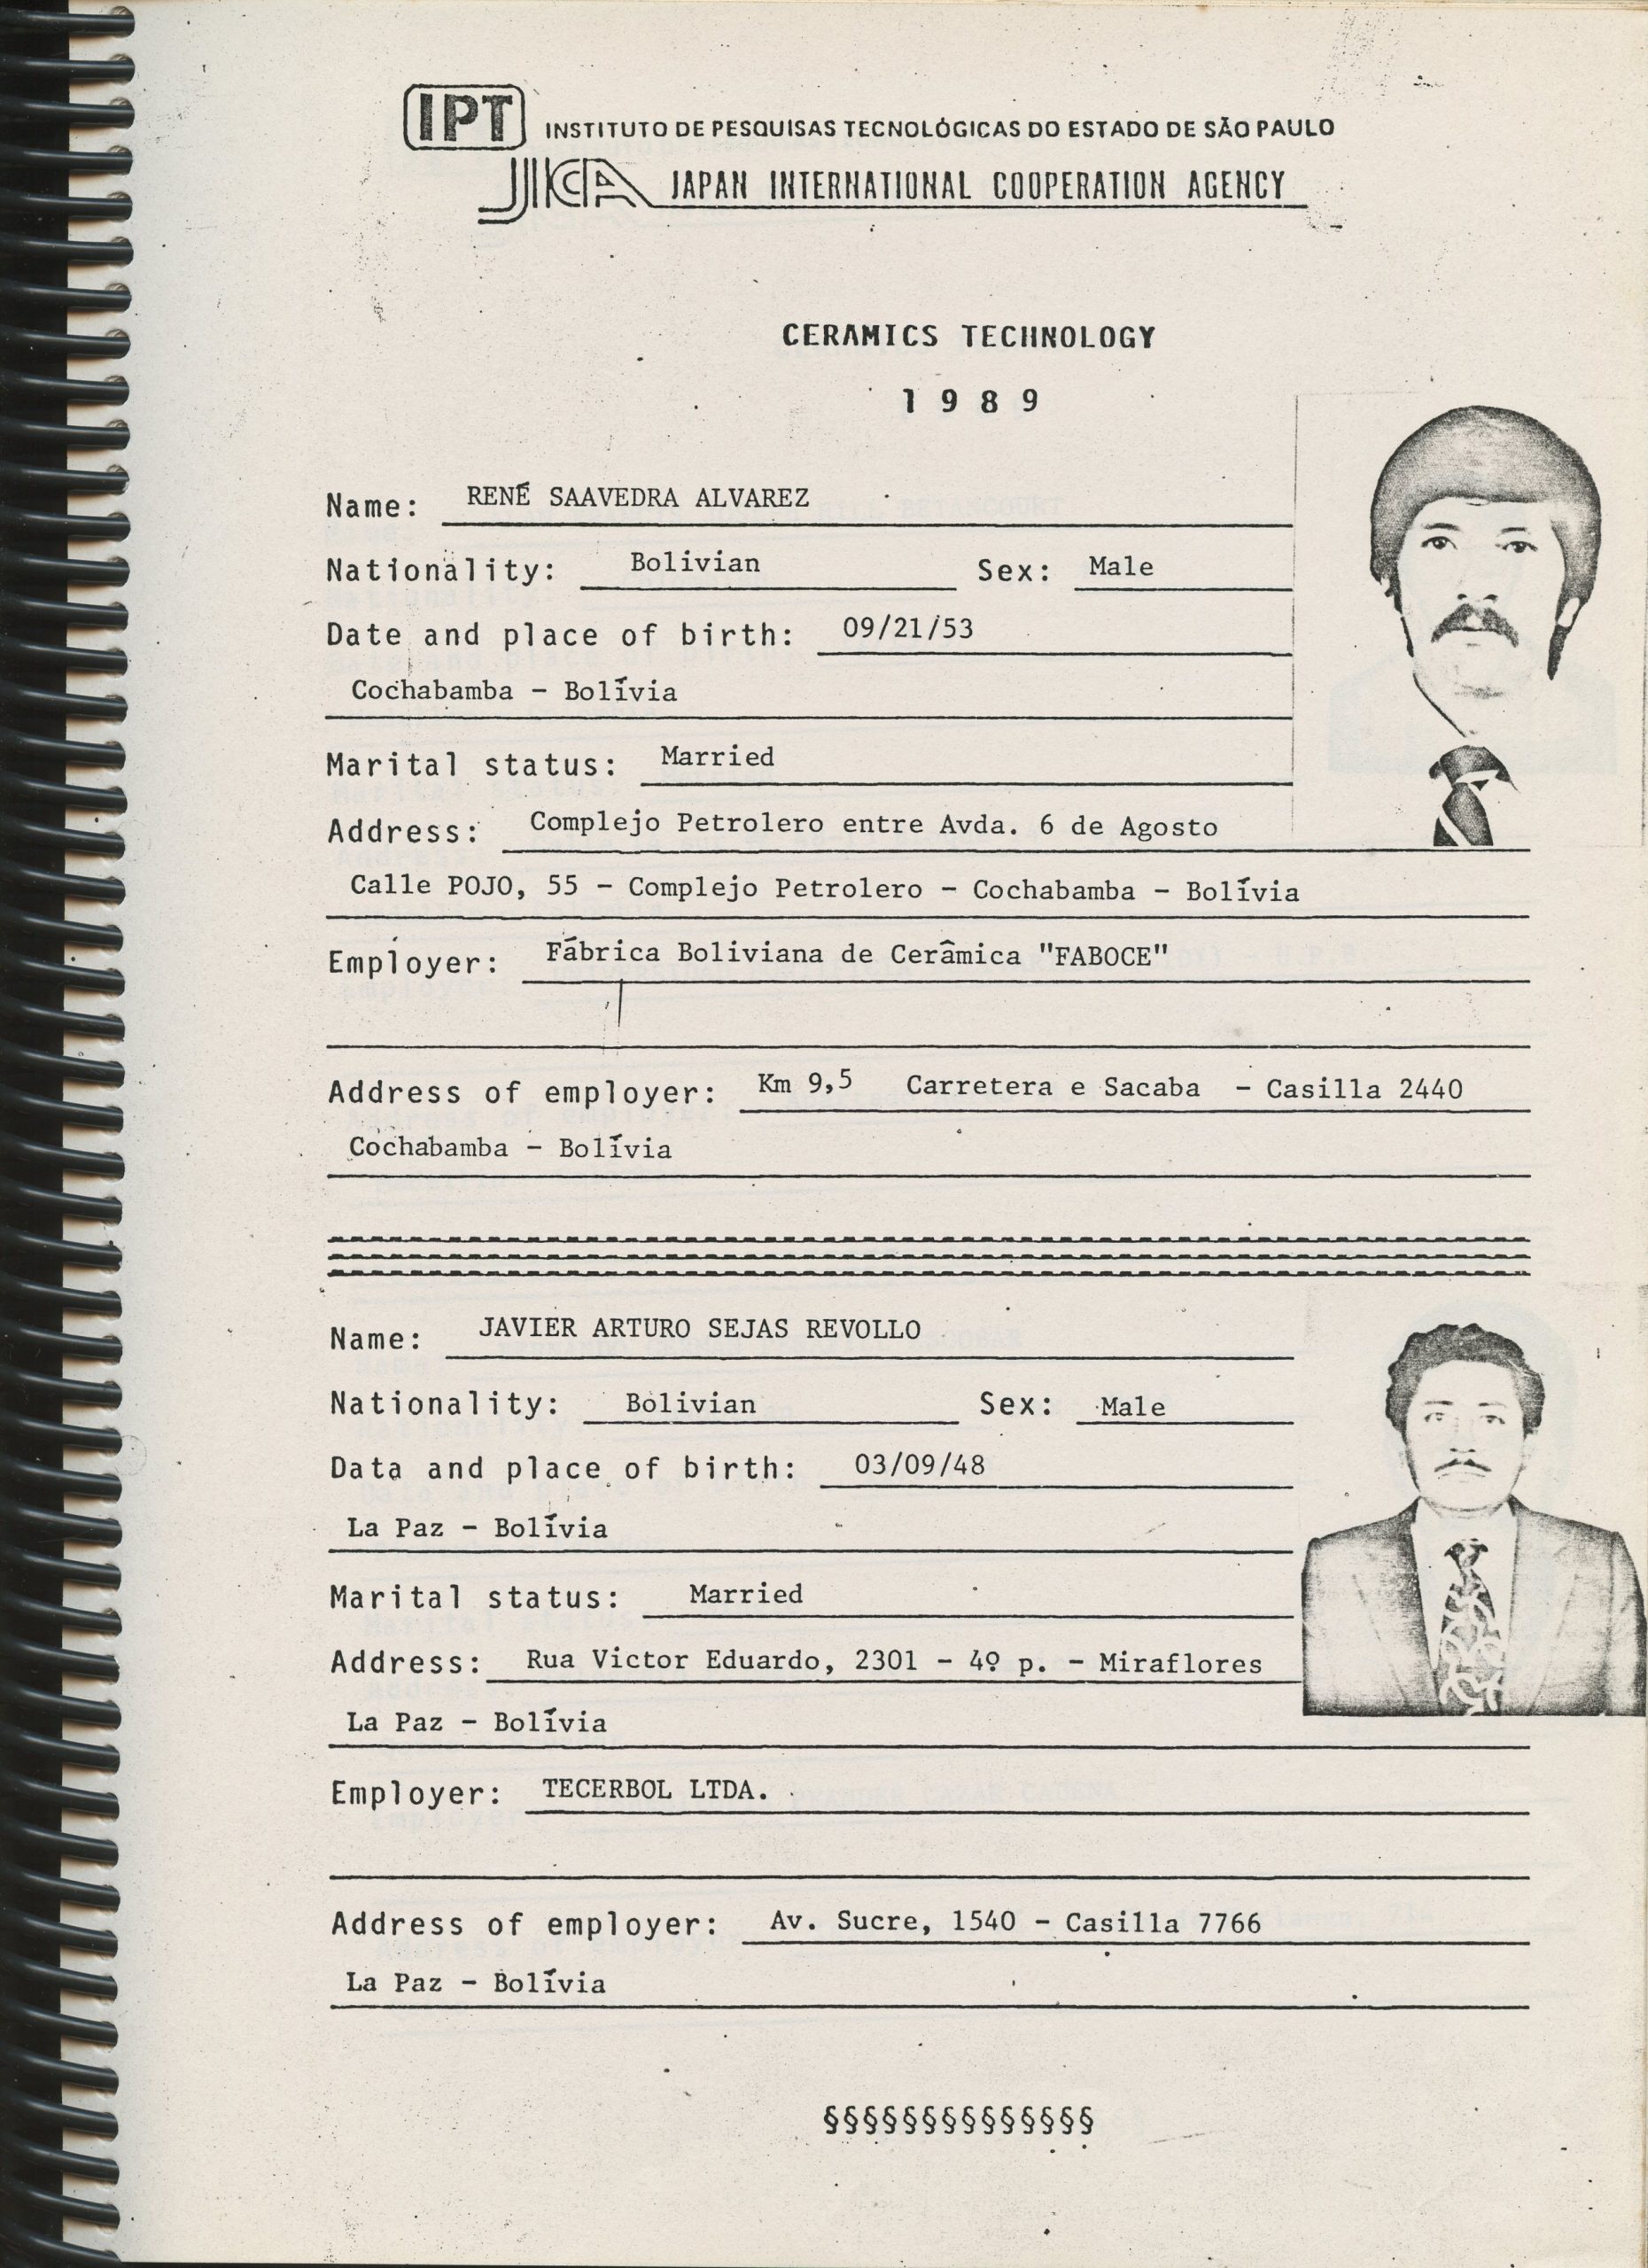 IPT INSTITUTO DE PESQUISAS TECNOLÓGICAS DO ESTADO DE SÃO PAULO
JICA JAPAN INTERNATIONAL COOPERATION AGENCY
CERAMICS TECHNOLOGY
1989
Name: RENÉ SAAVEDRA ALVAREZ
Nationality: Bolivian Sex: Male
Date and place of birth: 09/21/53
Cochabamba - Bolívia
Marital status: Married
Address: Complejo Petrolero entre Avda. 6 de Agosto
Calle POJO, 55 - Complejo Petrolero - Cochabamba - Bolívia
Employer: Fábrica Boliviana de Cerâmica "FABOCE"
Address of employer: Km 9,5 Carretera e Sacaba - Casilla 2440
Cochabamba - Bolívia
Name: JAVIER ARTURO SEJAS REVOLLO
Nationality: Bolivian Sex: Male
Data and place of birth: 03/09/48
La Paz - Bolívia
Marital status: Married
Address: Rua Victor Eduardo, 2301 - 4º p. - Miraflores
La Paz - Bolívia
Employer: TECERBOL LTDA.
Address of employer: Av. Sucre, 1540 - Casilla 7766
La Paz - Bolívia
§§§§§§§§§§§§§§